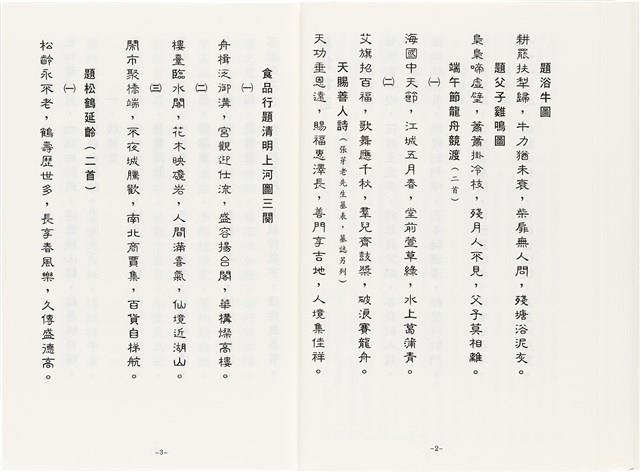 題浴牛圖
耕罷扶犁歸，牛力猶未衰，柴扉無人問，殘塘浴泥灰。
題父子雞鳴圖
梟梟啼虛壁，蕭蕭掛冷枝，殘月人不見，父子莫相離。
端午節龍舟競渡（二首）
㈠
海國中天節，江城五月春，堂前萱草綠，水上菖蒲青。
㈡
艾旗招百福，歌舞應千秋，羣兒齊鼓槳，破浪賽龍舟。
天賜善人詩（張芽老先生墓表，墓誌另列）
天功垂恩遠，賜福惠澤長，善門享吉地，人境集佳祥。
-2-
食品行題清明上河圖三闋
㈠
舟楫泛御溝，宮觀迎仕流，盛容揚台閣，華構燦高樓。
㈡
樓臺臨水閣，花木映巖岩，人間滿喜氣，仙境近湖山。
㈢
鬧市聚橋端，不夜城騰歡，南北商賈集，百貨自梯航。
題松鶴延齡（二首）
㈠
松齡永不老，鶴壽歷世多，長享春風樂，久傳盛德高。
-3-